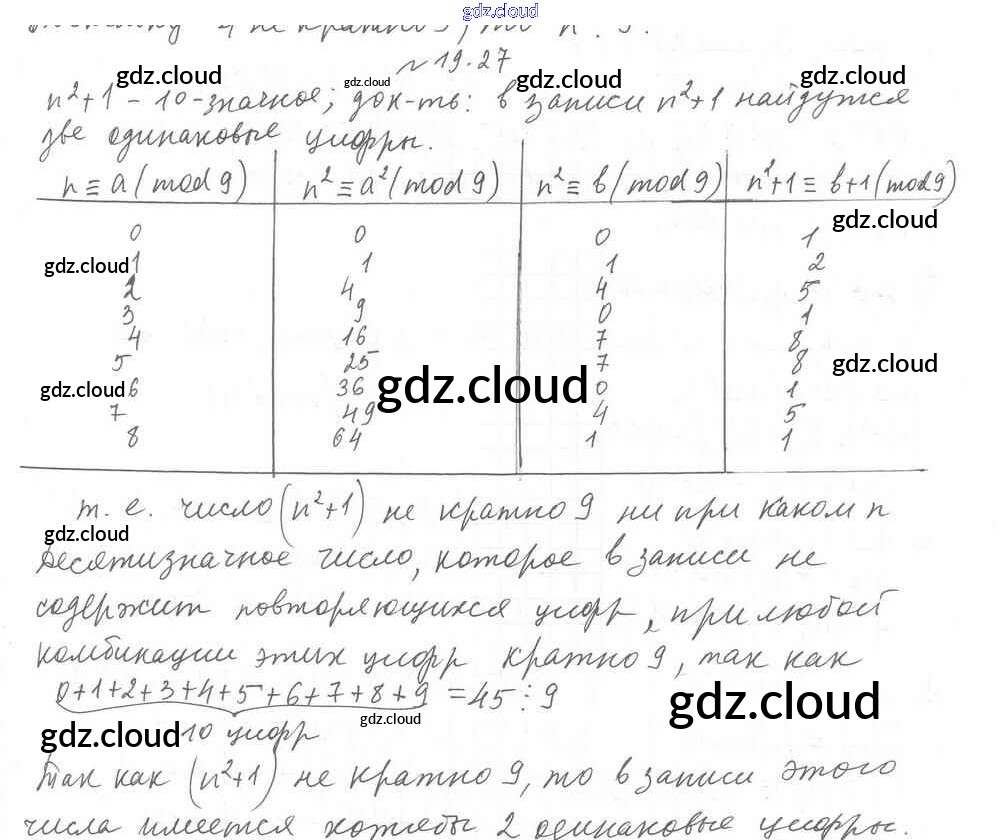 gdz.cloud
№ 19.27
n²+1 - 10-значное; док-ть: в записи n²+1 найдутся
две одинаковые цифры.
n ≡ a (mod 9) n² ≡ a² (mod 9) n² ≡ b (mod 9) n²+1 ≡ b+1 (mod 9)
0 0 0 1
1 1 1 2
2 4 4 5
3 9 0 1
4 16 7 8
5 25 7 8
6 36 0 1
7 49 4 5
8 64 1 1
т. е. число (n²+1) не кратно 9 ни при каком n
Десятизначное число, которое в записи не
содержит повторяющихся цифр, при любой
комбинации этих цифр кратно 9, так как
0+1+2+3+4+5+6+7+8+9 = 45 ⋮ 9
10 цифр
Так как (n²+1) не кратно 9, то в записи этого
числа имеется хотябы 2 одинаковые цифры.
gdz.cloud
gdz.cloud
gdz.cloud
gdz.cloud
gdz.cloud
gdz.cloud
gdz.cloud
gdz.cloud
gdz.cloud
gdz.cloud
gdz.cloud
gdz.cloud
gdz.cloud